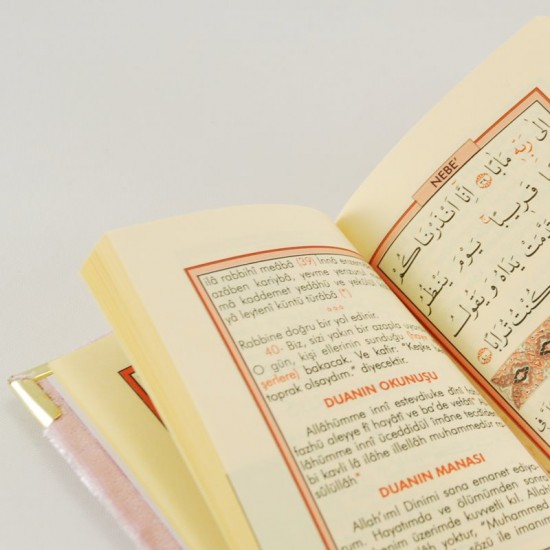 ilâ rabbihî meâbâ (39) İnnâ enzern
azâben kariybâ, yevme yenzurul
mâ kaddemet yedâhü ve yekûlül
yâ leytenî küntü türâbâ (*)
***
Rabbine doğru bir yol edinir.
40. Biz, sizi yakın bir azapla uyar
O gün, kişi ellerinin sunduğu (hayır
şerlere) bakacak. Ve kafir: "Keşke
toprak olsaydım." diyecektir.
DUANIN OKUNUŞU
Allâhümme innî estevdiuke dînî
fazhü aleyye fî hayâtî ve ba'de vefâtî
lâhümme innî üceddidül îmâne tecdîde
bi kavli lâ ilâhe illellâh muhammedür
sûlüllâh"
DUANIN MANASI
Allah'ım! Dinimi sana emanet ediyo
rum. Hayatımda ve ölümümden sonra
benim üzerimde kuvvetli kıl. Allah'ım
yoktur, "Muhammed
sözü ile imanım
NEBE'
إِلَى رَبِّهِ مَآبًا ﴿٣٩﴾ إِنَّا أَنْذَرْنَاكُمْ
قَرِيبًا يَوْمَ يَنْظُرُ
قَدَّمَتْ يَدَاهُ وَيَقُولُ
كُنْتُ تُرَابًا ﴿٤٠﴾